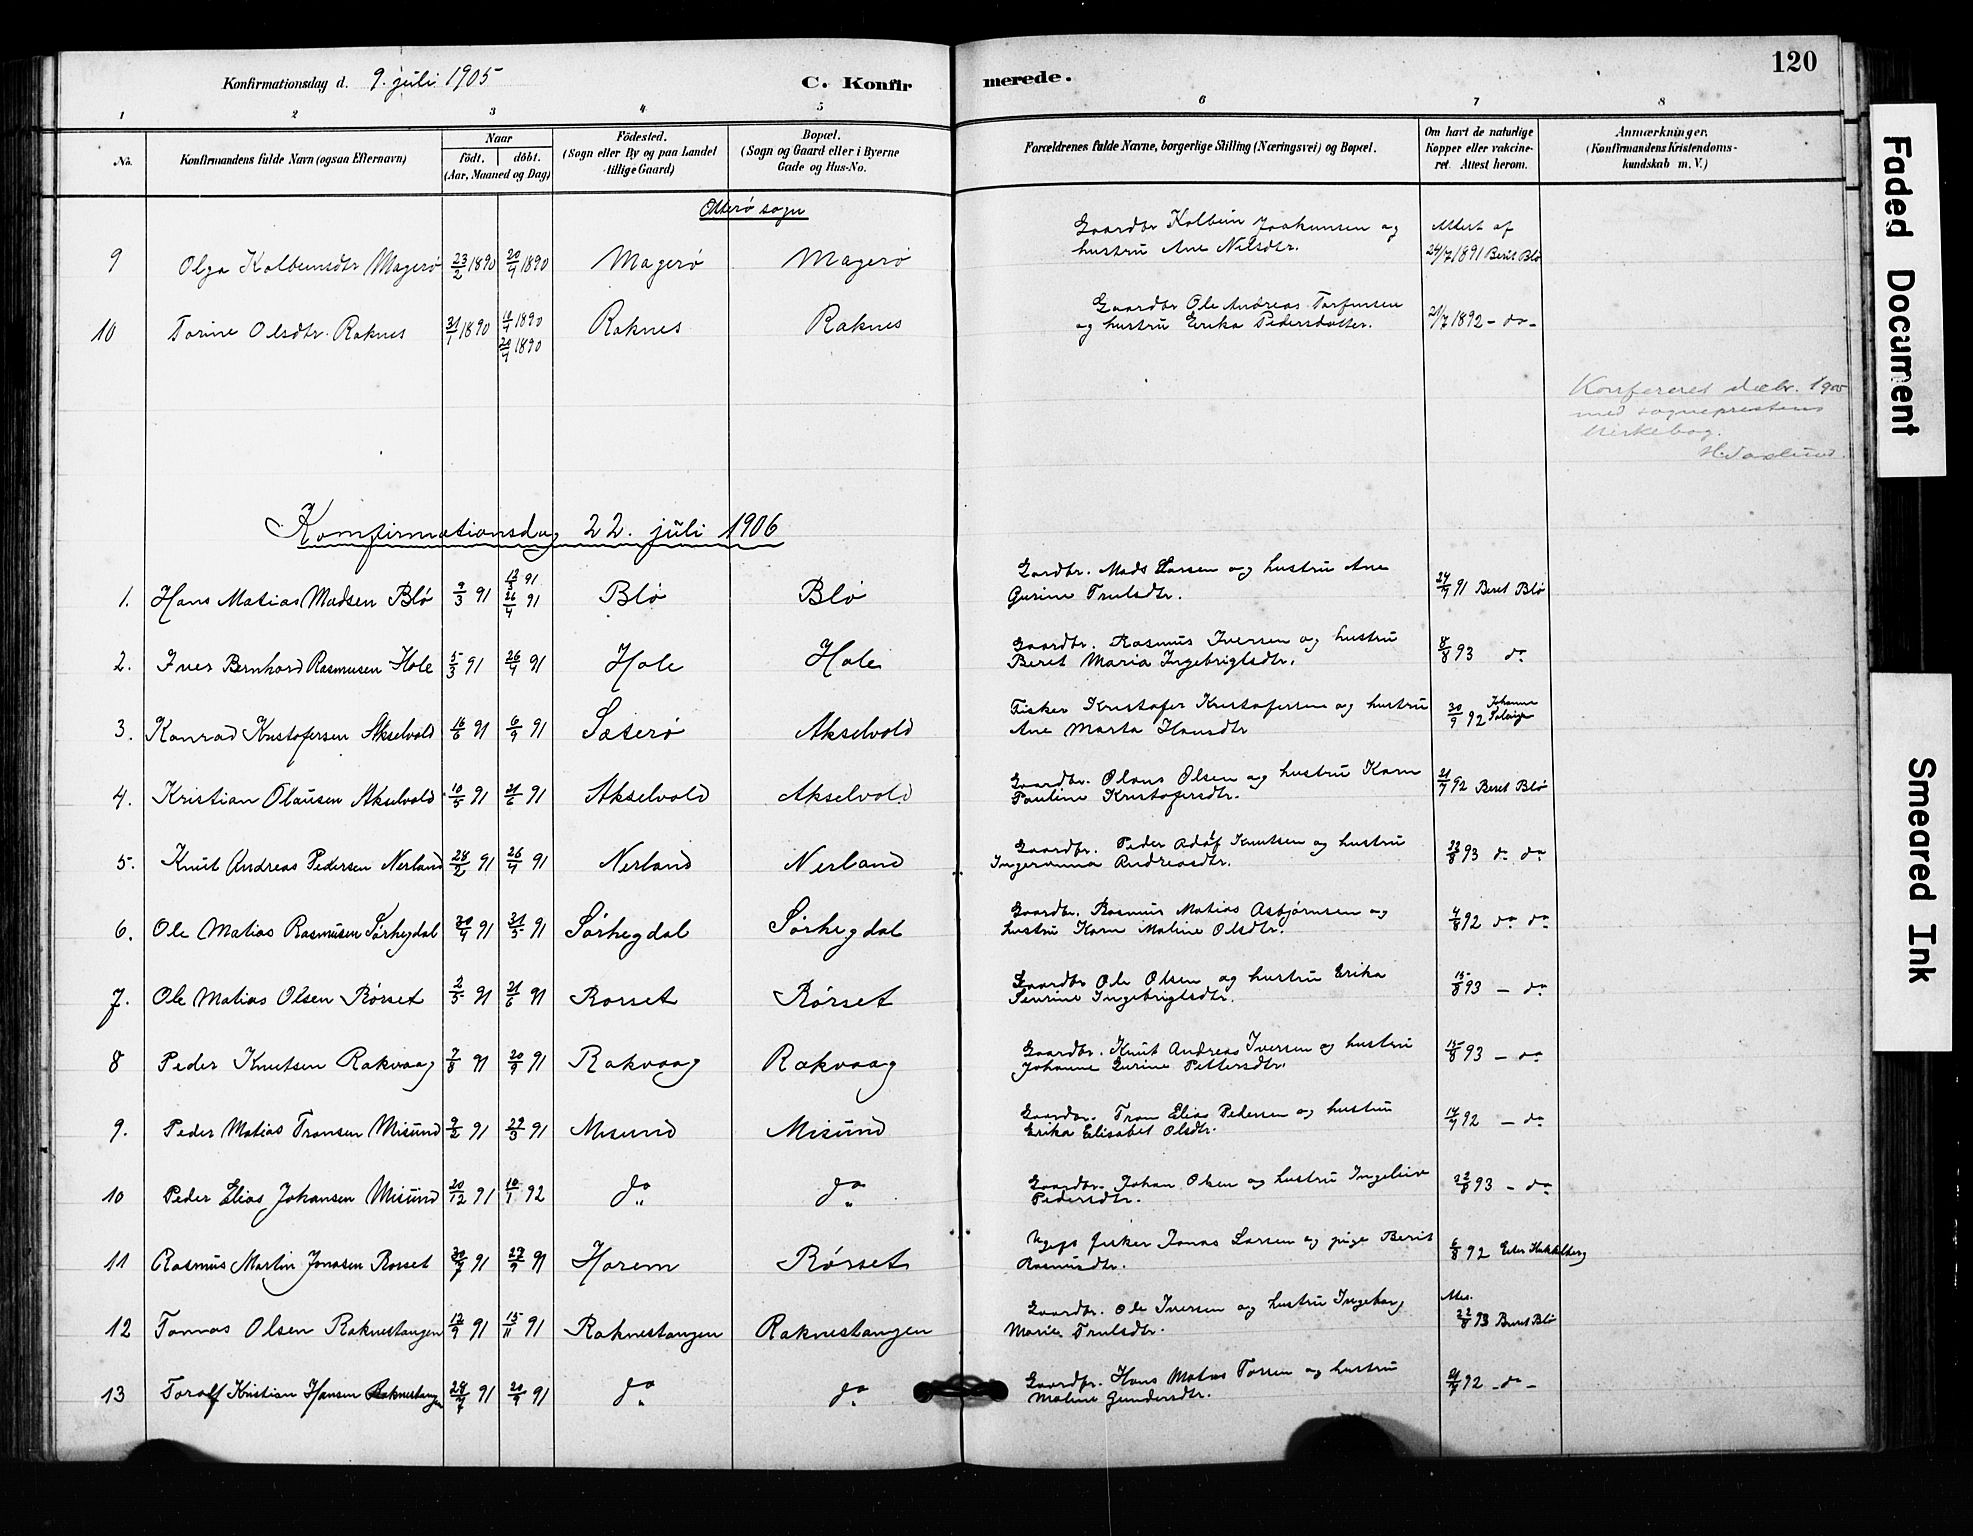 120
Konfirmationsdag d. 9. juli 1905 C. Konfirmerede.
1 2 3 4 5 6 7 8
No. Konfirmandens fulde Navn (ogsaa Efternavn) Naar födt. döbt. (Aar, Maaned og Dag) Födested. (Sogn eller By og paa Landet tillige Gaard) Bopæl. (Sogn og Gaard eller i Byerne Gade og Hus-No. Forældrenes fulde Navne, borgerlige Stilling (Næringsvei) og Bopæl. Om havt de naturlige Kopper eller vakcineret. Attest herom. Anmærkninger. (Konfirmandens Kristendomskundskab m. V.)
Otterø sogn
9 Olga Kolbeinsdtr Magerø 23/2 1890 20/4 1890 Magerø Magerø Gaardbr Kolbein Joakimsen og hustru Ane Nilsdtr. Attest af 24/7 1891 Berit Blø
10 Torine Olsdtr. Raknes 31/1 1890 20/4 1890 Raknes Raknes Gaardbr Ole Andreas Torfinsen og hustru Erika Pedersdatter. 21/7 1892 - do -
Konfereret decbr. 1905
med sogneprestens
kirkebog.
Konfirmationsdag 22. juli 1906
1. Hans Matias Madsen Blø 9/3 91 26/4 91 Blø Blø Gardbr. Mads Larsen og hustru Ane Gurine Trulsdtr. 24/7 91 Beret Blø
2. Iver Bernhard Rasmusen Hole 5/3 91 26/4 91 Hole Hole Gaardbr. Rasmus Iversen og hustru Beret Maria Ingebrigtsdtr. 8/8 93 do
3. Konrad Kristofersen Akselvold 16/6 91 6/9 91 Sæterø Akselvold Fisker Kristofer Kristofersen og hustru Ane Marta Hansdtr 30/9 92 Johanne
4. Kristian Olausen Akselvold 10/5 91 21/6 91 Akselvold Akselvold Gaardbr. Olaus Olsen og hustru Karn Pauline Kristofersdtr. 21/7 92 Beret Blø
5. Knut Andreas Pedersen Nerland 28/2 91 26/4 91 Nerland Nerland Gaardbr. Peder Adolf Knutsen og hustru Ingeranna Andreasdtr. 22/8 93 do do
6. Ole Matias Rasmusen Sørhegdal 30/4 91 31/5 91 Sørhegdal Sørhegdal Gaardbr. Rasmus Matias Asbjørnsen og hustru Karn Maline Olsdtr. 4/8 92 do do
7. Ole Matias Olsen Rørset 2/5 91 21/6 91 Rorset Rørset Gaardbr Ole Olsen og hustru Erika Ingebrigtsdtr. 15/8 93 - do
8 Peder Knutsen Rakvaag 7/8 91 20/9 91 Rakvaag Rakvaag Gaardbr. Knut Andreas Iversen og hustru Johanne Gurine Pettersdtr. 15/8 93 - do
9. Peder Matias Tronsen Misund 9/2 91 27/3 91 Misund Misund Gaardbr. Tron Elias Pedersen og hustru Erika Elisabet Olsdtr. 14/7 92 - do
10 Peder Elias Johansen Misund 20/12 91 10/1 92 do do Gaardbr. Johan Olsen og hustru Ingeleiv Pedersdtr. 22/8 93 - do
11 Rasmus Martin Jonasen Rorset 30/7 91 27/9 91 Harem Rørset Ugift fisker Jonas Larsen og pige Berit Rasmusdtr. 6/8 92
12 Tomas Olsen Raknestangen 12/9 91 15/11 91 Raknestangen Raknestangen Gaardbr. Ole Iversen og hustru Ingeborg Marie Trulsdtr. 22/8 93 Beret Blø
13 Toralf Kristian Hansen Raknestangen 28/7 91 20/9 91 do do Gaardbr. Hans Matias Torsen og hustru Maline Gundersdtr. 21/7 92 - do -
Faded Document
Smeared Ink